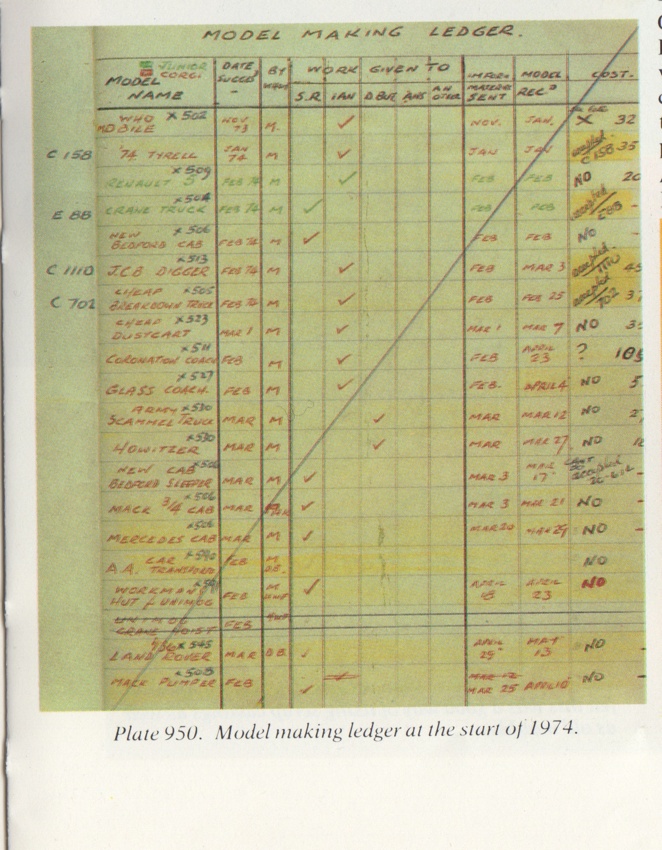 MODEL MAKING LEDGER.
JUNIOR CORGI
MODEL NAME DATE SUGGD BY WORK GIVEN TO INFORM MATERIAL SENT MODEL RECD COST.
S.R IAN D BUT AN OTHER
WHO X502
MOBILE NOV 73 M. ✓ NOV. JAN. X 32
C 158 '74 TYRELL JAN 74 M ✓ JAN JAN accepted C158 35
X509
RENAULT 5 FEB 74 M ✓ FEB FEB NO 20
X504
E 88 CRANE TRUCK FEB 74 M ✓ FEB FEB accepted E88 -
NEW X506
BEDFORD CAB FEB 74 M ✓ FEB FEB NO -
X513
C 1110 J.C.B DIGGER FEB 74 M ✓ FEB MAR 3 accepted 1110 45
CHEAP X505
C 702 BREAKDOWN TRUCK FEB 74 M ✓ FEB FEB 25 accepted 702 37
CHEAP X523
DUSTCART MAR 1 M ✓ MAR 1 MAR 7 NO 35
X511
CORONATION COACH FEB M ✓ FEB APRIL 23 ? 185
X527
GLASS COACH. FEB M ✓ FEB. APRIL 4 NO 5
ARMY X530
SCAMMEL TRUCK MAR M ✓ MAR MAR 12 NO 27
X530
HOWITZER MAR M ✓ MAR MAR 27 NO
NEW CAB X506
BEDFORD SLEEPER MAR M ✓ MAR 3 MAR 17 accepted
X506
MACK 3/4 CAB MAR ✓ MAR 3 MAR 21 NO -
X506
MERCEDES CAB MAR M ✓ MAR 20 MAR 29 NO -
CAR X540
A.A. TRANSPORT FEB M D.B. NO
WORKMANS
HUT & UNIMOG FEB M ✓ APRIL 18 APRIL 23 NO
UNIMOG
CRANE HOIST FEB
X545
LAND ROVER MAR D.B. ✓ APRIL 29 MAY 13 NO -
X508
MACK PUMPER FEB ✓ MAR 12 MAR 25 APRIL 16 NO -
Plate 950. Model making ledger at the start of 1974.